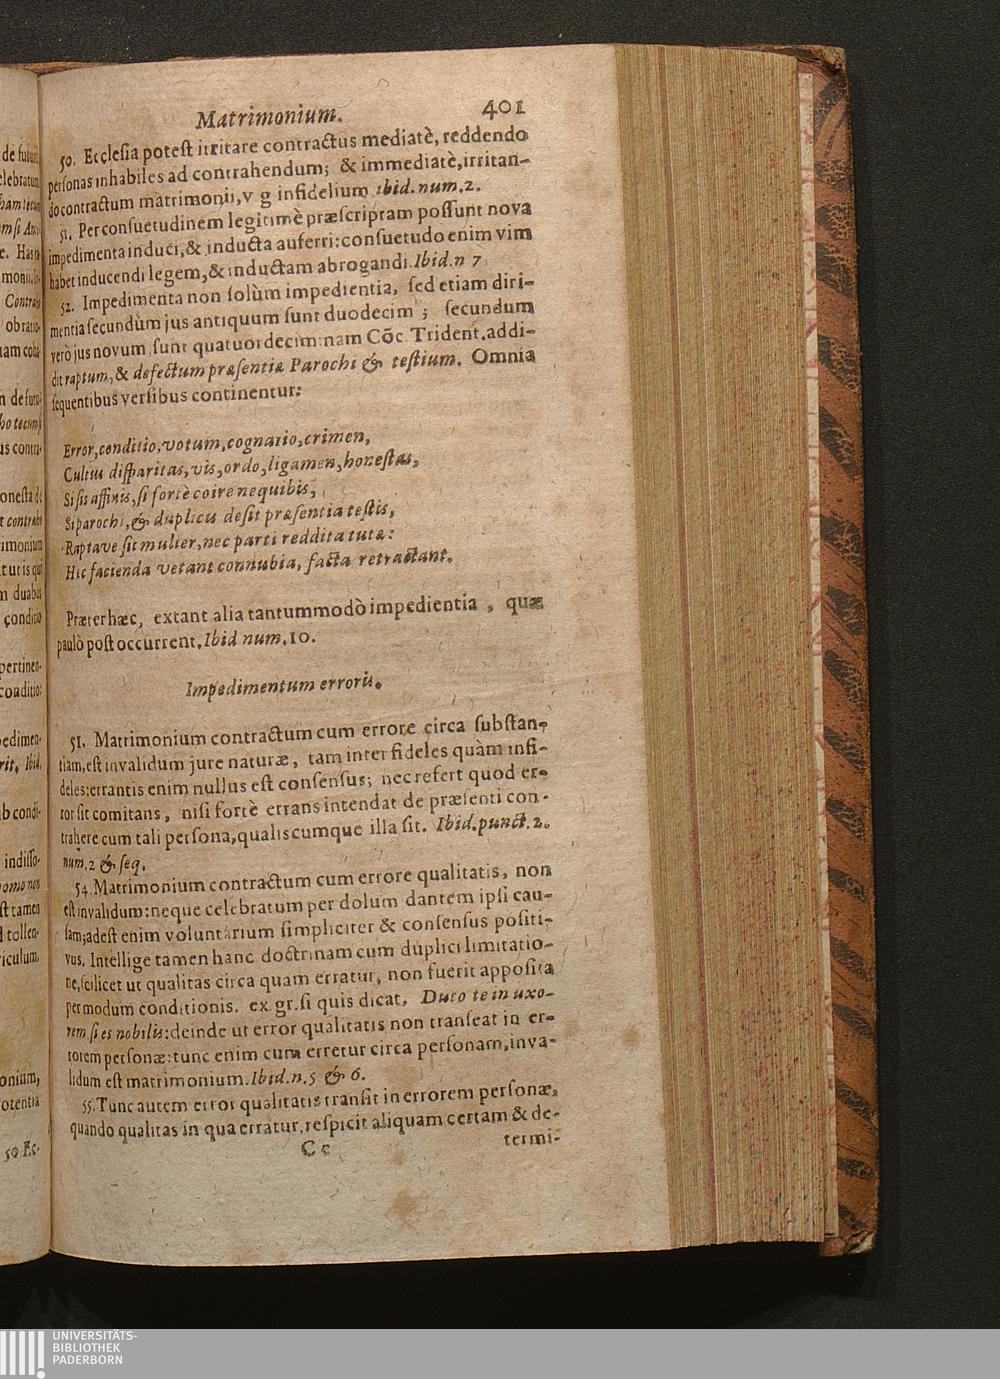 de futuri
celebratum
Matrimonium. 401
50. Ecclesia potest irritare contractus mediatè, reddendo
personas inhabiles ad contrahendum; & immediatè, irritan-
do contractum matrimonii, v g infidelium ibid. num. 2.
51. Per consuetudinem legitimè præscriptam possunt nova
impedimenta induci, & inducta auferri: consuetudo enim vim
habet inducendi legem, & inductam abrogandi. Ibid. n 7
52. Impedimenta non solùm impedientia, sed etiam diri-
mentia secundùm jus antiquum sunt duodecim; secundum
verò jus novum sunt quatuordecim: nam Cõc Trident. addi-
dit raptum, & defectum præsentiæ Parochi & testium. Omnia
sequentibus versibus continentur:
Error, conditio, votum, cognatio, crimen,
Cultus disparitas, vis, ordo, ligamen, honestas,
Si sis affinis, si fortè coire nequibis,
Si parochi, & duplicis desit præsentia testis,
Raptave sit mulier, nec parti reddita tutæ:
Hic facienda vetant connubia, facta retractant.
Præter hæc, extant alia tantummodò impedientia, quæ
paulò post occurrent. Ibid num. 10.
Impedimentum erroris.
51. Matrimonium contractum cum errore circa substan-
tiam, est invalidum jure naturæ, tam inter fideles quàm infi-
deles: errantis enim nullus est consensus; nec refert quod er-
ror sit comitans, nisi fortè errans intendat de præsenti con-
trahere cum tali persona, qualiscumque illa sit. Ibid. punct. 2.
num. 2 & seq.
54. Matrimonium contractum cum errore qualitatis, non
est invalidum: neque celebratum per dolum dantem ipsi cau-
sam; adest enim voluntarium simpliciter & consensus positi-
vus. Intellige tamen hanc doctrinam cum duplici limitatio-
ne, scilicet ut qualitas circa quam erratur, non fuerit apposita
per modum conditionis. ex. gr. si quis dicat, Duco te in uxo-
rem si es nobilis: deinde ut error qualitatis non transeat in er-
rorem personæ: tunc enim cum erretur circa personam, inva-
lidum est matrimonium. Ibid. n. 5 & 6.
55. Tunc autem error qualitatis transit in errorem personæ,
quando qualitas in qua erratur, respicit aliquam certam & de-
C c termi-
50 Ec-
UNIVERSITÄTS-
BIBLIOTHEK
PADERBORN